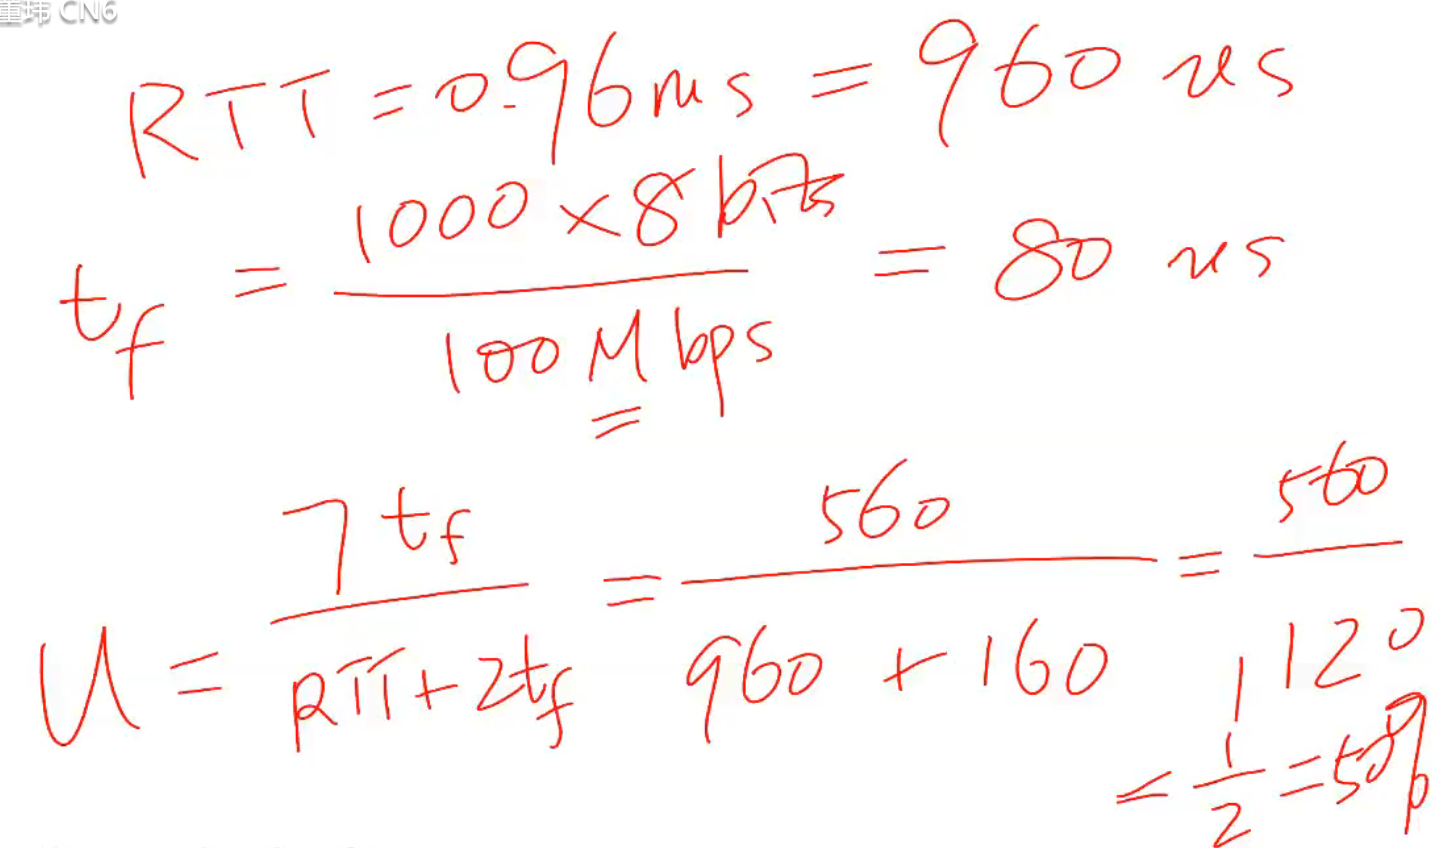 重玮 CN6
RTT = 0.96 ms = 960 us
t_f = 1000 × 8 bits / 100 Mbps = 80 us
U = 7 t_f / RTT + 2t_f = 560 / 960 + 160 = 560 / 1120
= 1/2 = 50%